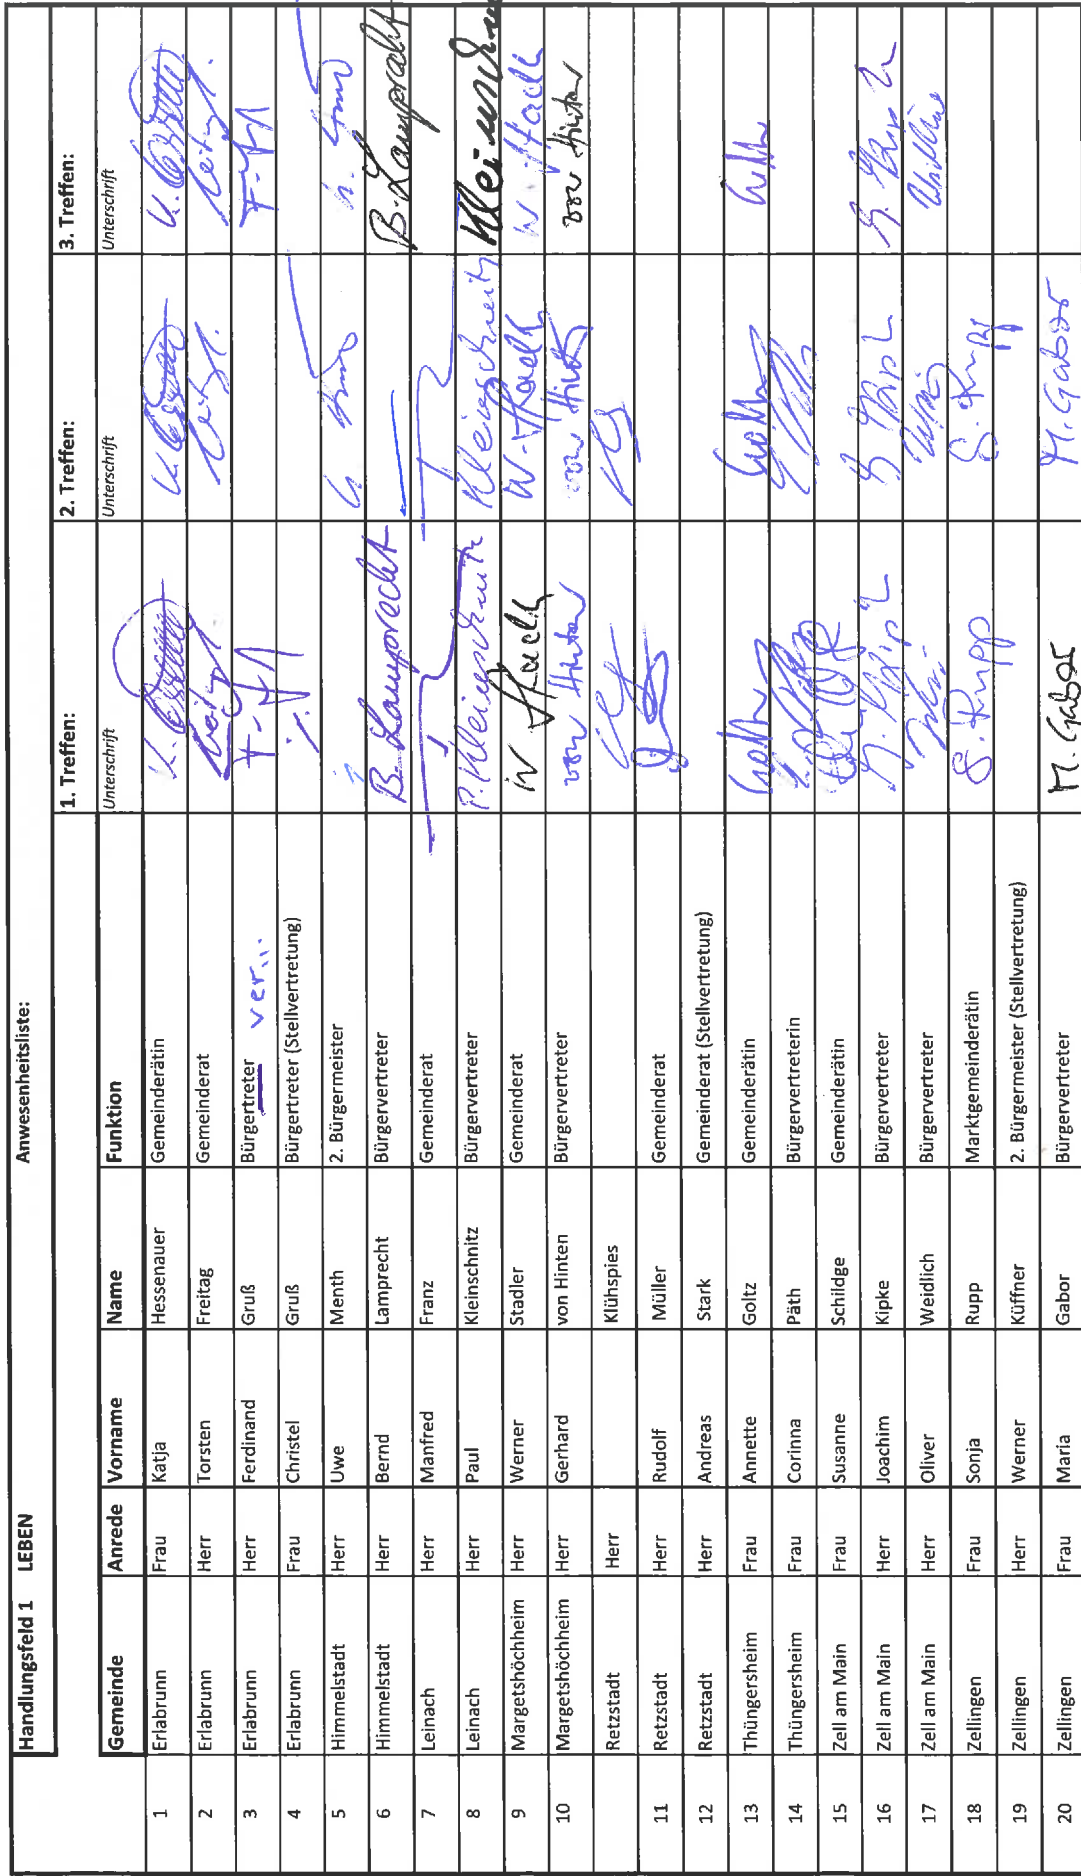 Handlungsfeld 1 LEBEN Anwesenheitsliste:
1. Treffen: 2. Treffen: 3. Treffen:
Gemeinde Anrede Vorname Name Funktion Unterschrift Unterschrift Unterschrift
1 Erlabrunn Frau Katja Hessenauer Gemeinderätin
2 Erlabrunn Herr Torsten Freitag Gemeinderat
3 Erlabrunn Herr Ferdinand Gruß Bürgertreter ver...
4 Erlabrunn Frau Christel Gruß Bürgertreter (Stellvertretung)
5 Himmelstadt Herr Uwe Menth 2. Bürgermeister
6 Himmelstadt Herr Bernd Lamprecht Bürgervertreter B. Lamprecht B. Lamprecht
7 Leinach Herr Manfred Franz Gemeinderat
8 Leinach Herr Paul Kleinschnitz Bürgervertreter P. Kleinschnitz Kleinschnitz
9 Margetshöchheim Herr Werner Stadler Gemeinderat
10 Margetshöchheim Herr Gerhard von Hinten Bürgervertreter von Hinten von Hinten von Hinten
Retzstadt Herr Klühspies
11 Retzstadt Herr Rudolf Müller Gemeinderat
12 Retzstadt Herr Andreas Stark Gemeinderat (Stellvertretung)
13 Thüngersheim Frau Annette Goltz Gemeinderätin
14 Thüngersheim Frau Corinna Päth Bürgervertreterin
15 Zell am Main Frau Susanne Schildge Gemeinderätin
16 Zell am Main Herr Joachim Kipke Bürgervertreter
17 Zell am Main Herr Oliver Weidlich Bürgervertreter
18 Zellingen Frau Sonja Rupp Marktgemeinderätin S. Rupp S. Rupp
19 Zellingen Herr Werner Küffner 2. Bürgermeister (Stellvertretung)
20 Zellingen Frau Maria Gabor Bürgervertreter M. Gabor M. Gabor